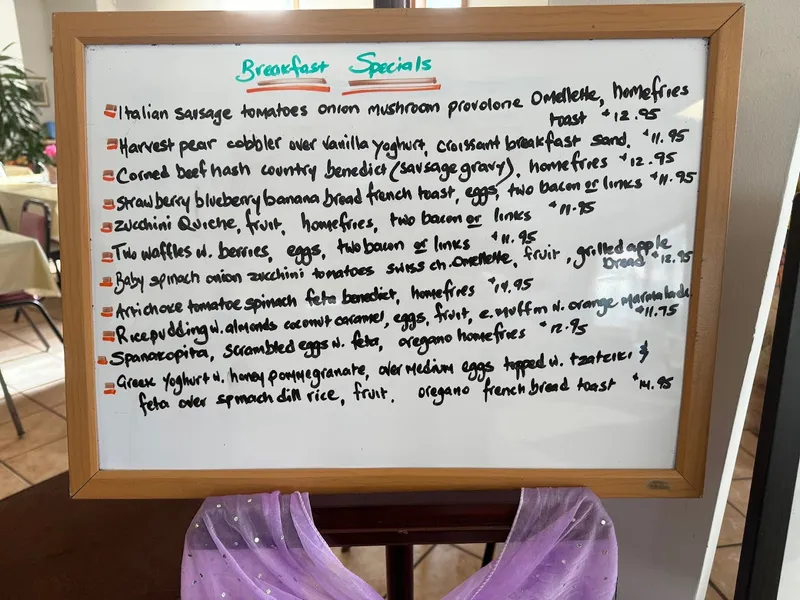 Breakfast Specials
Italian sausage tomatoes onion mushroom provolone Omellette, homefries
toast $12.95
Harvest pear cobbler over vanilla yoghurt, croissant breakfast sand. $11.95
Corned beef hash country benedict (sausage gravy), homefries $12.95
Strawberry blueberry banana bread french toast, eggs, two bacon or links $11.95
Zucchini Quiche, fruit, homefries, two bacon or links $11.95
Two waffles w. berries, eggs, two bacon or links $11.95
Baby spinach onion zucchini tomatoes swiss ch. Omellette, fruit, grilled apple
bread $12.95
Artichoke tomatoe spinach feta benedict, homefries $14.95
Ricepudding w. almonds coconut caramel, eggs, fruit, e. muffin w. orange marmalade
$11.95
Spanakopita, scrambled eggs w. feta, oregano homefries $12.95
Greek Yoghurt w. honey pommegranate, over medium eggs topped w. tzatziki &
feta over spinach dill rice, fruit, oregano french bread toast $14.95